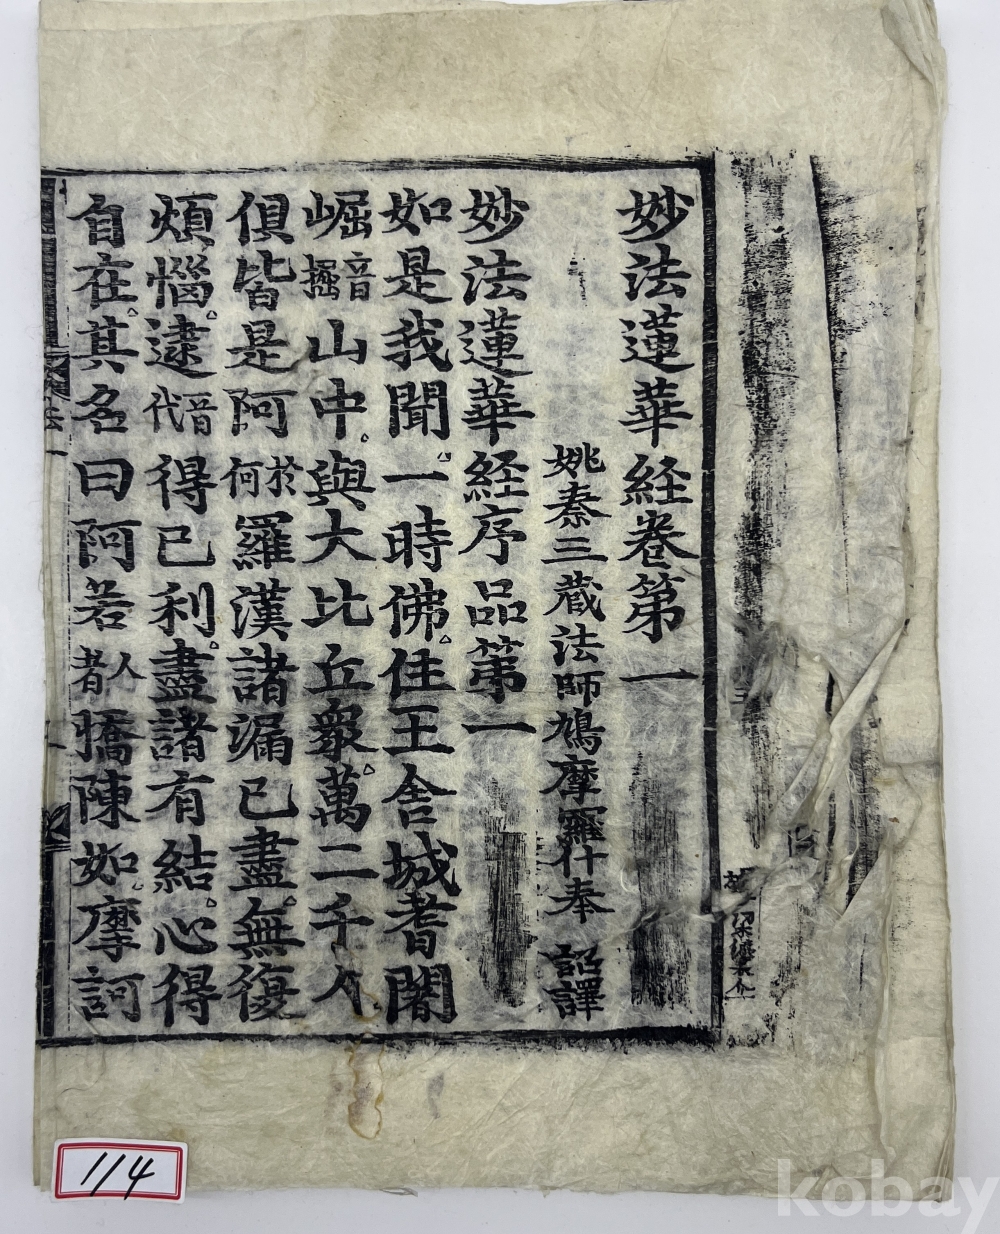 妙法蓮華経卷第一
姚秦三蔵法師鳩摩羅什奉 詔譯
妙法蓮華経序品第一
如是我聞一時佛住王舍城耆闍
崛音掘山中與大比丘衆萬二千人
俱皆是阿於何羅漢諸漏已盡無復
煩惱逮音代得已利盡諸有結心得
自在其名曰阿若人者驕陳如摩訶
法
一
114
kobay